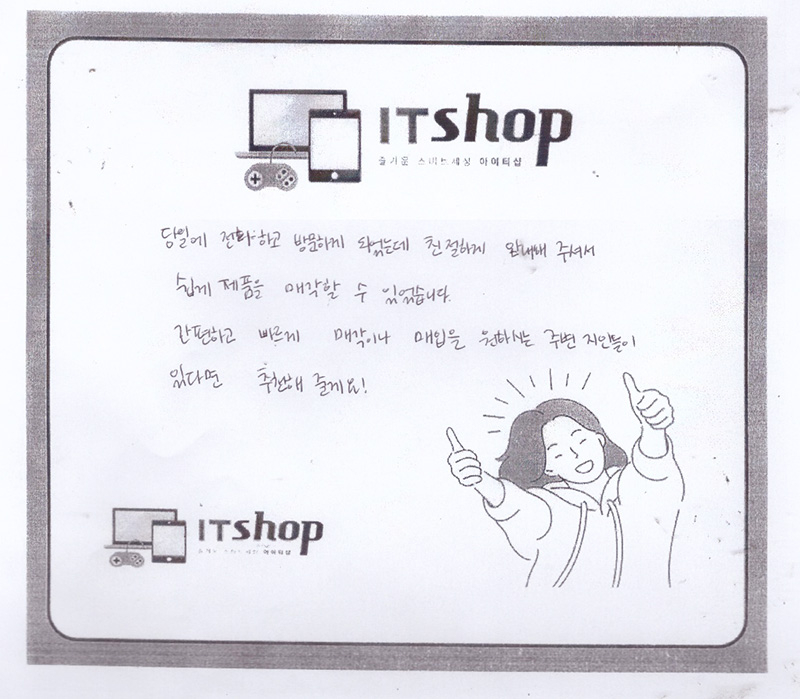 ITshop
즐거운 스마트세상 아이티샵
당일에 전화하고 방문하게 되었는데 친절하게 안내해 주셔서
쉽게 제품을 매각할 수 있었습니다.
간편하고 빠르게 매각이나 매입을 원하시는 주변 지인들이
있다면 추천해 줄게요!
ITshop
아이티샵